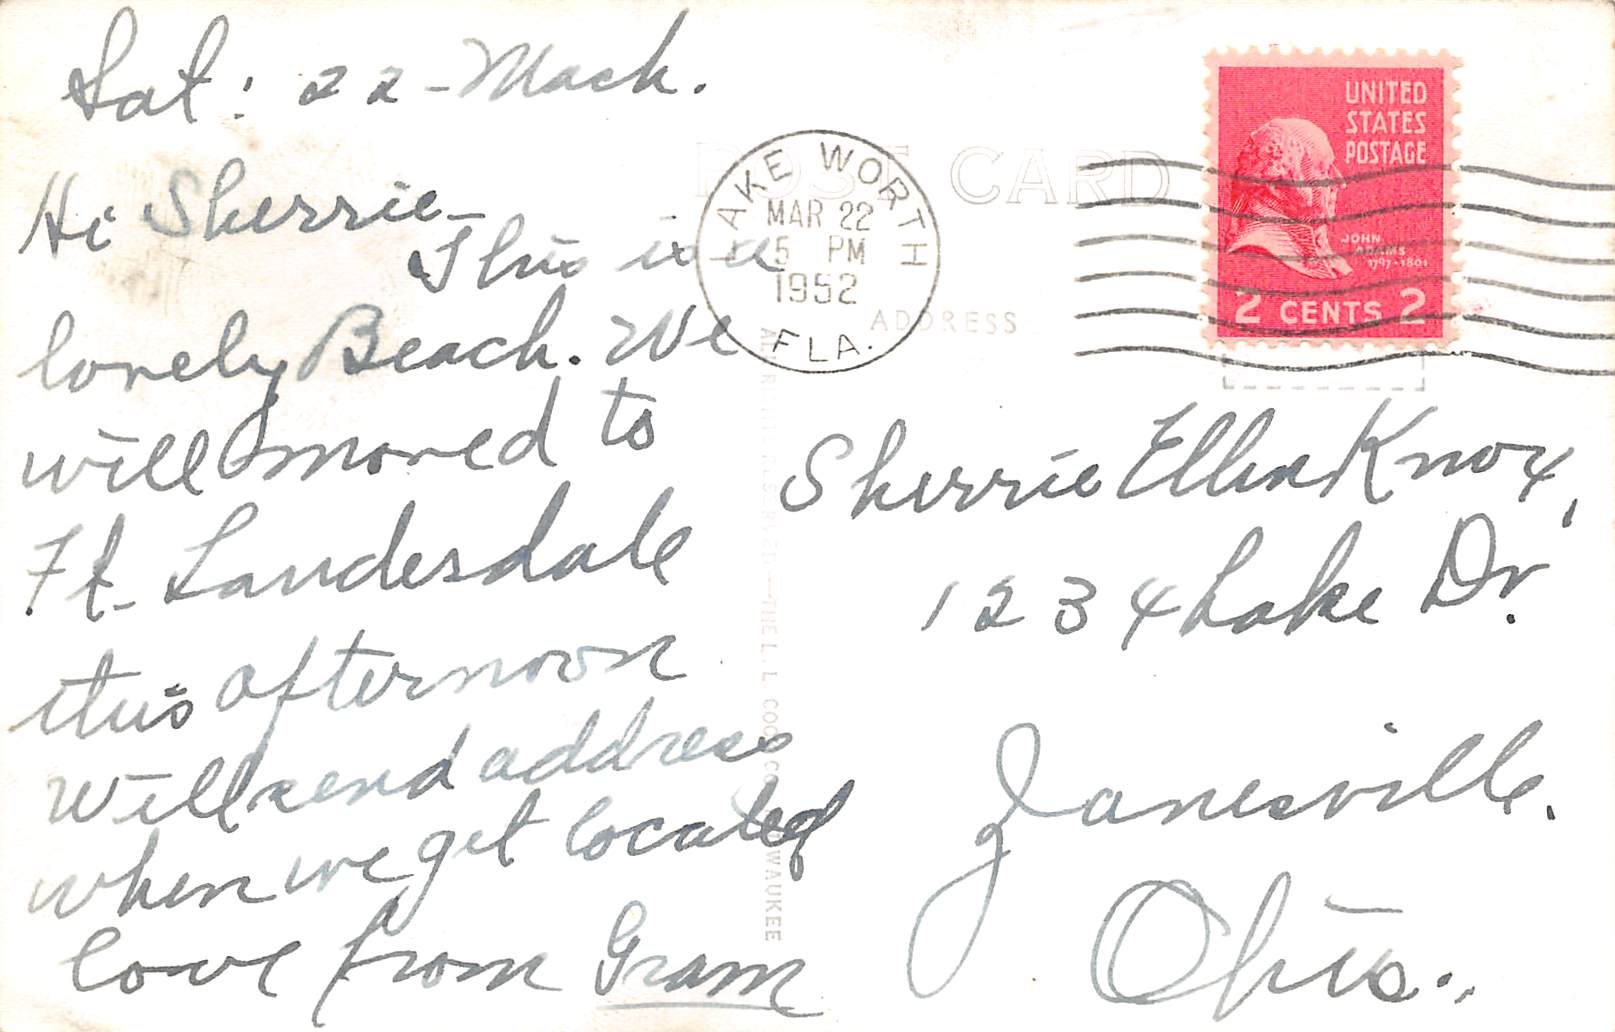 Sat: 22-Mach.
Hi Sherrie-
This is a
lovely Beach. We
will moved to
Ft. Lauderdale
this afternoon
will send address
when we get located
love from Gram
POST CARD
LAKE WORTH
MAR 22
5 PM
1952
FLA.
ADDRESS
UNITED
STATES
POSTAGE
JOHN
ADAMS
1797-1801
2 CENTS 2
Sherrie Ellen Knox,
1234 Lake Dr.
Zanesville.
Ohio.
THE L. L. COOK CO. MILWAUKEE